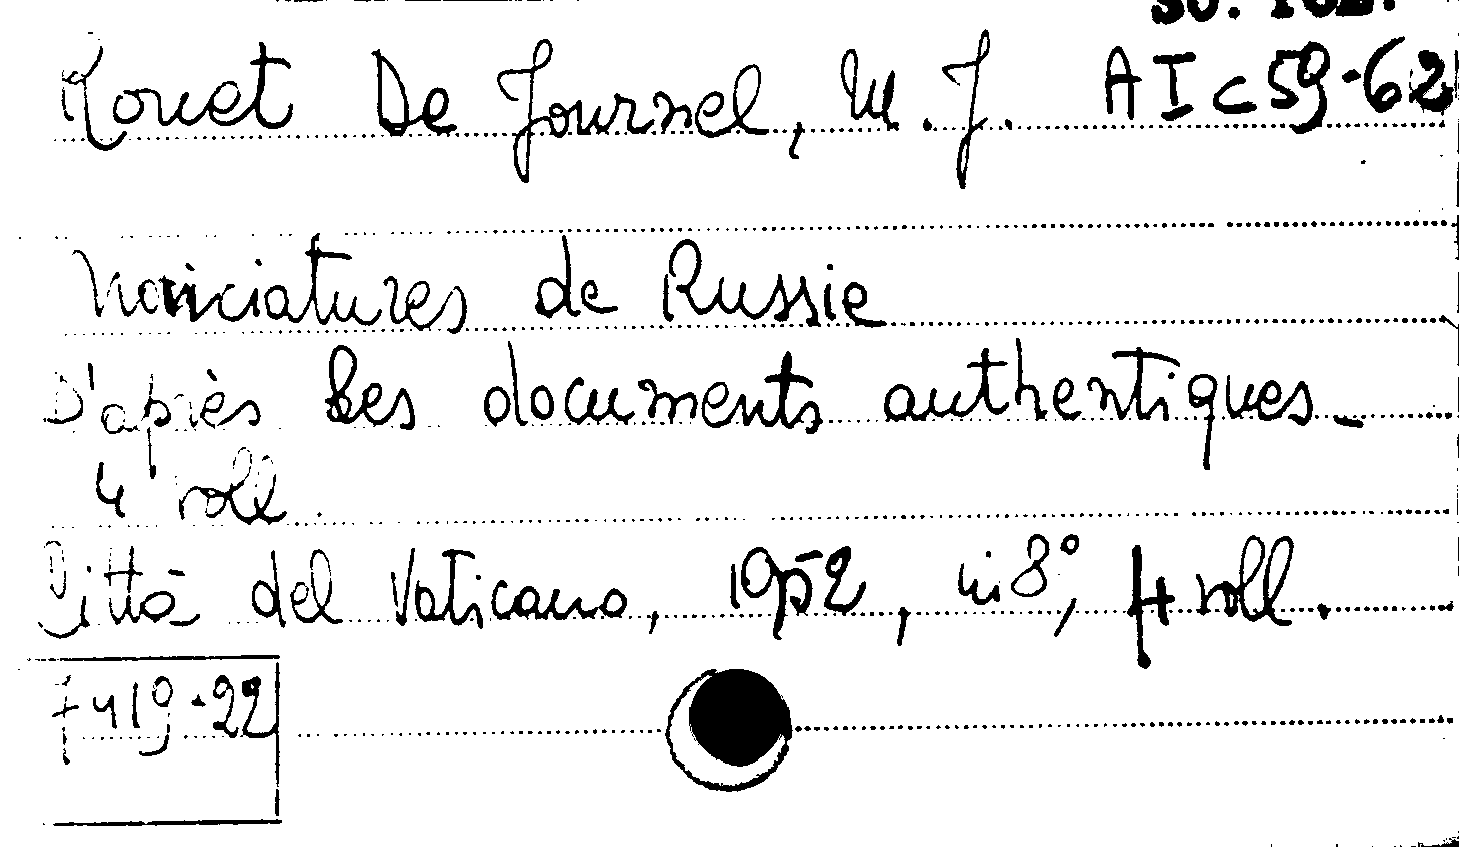 Rouet De Journel, M. J. AI c 59-62
Nonciatures de Russie
D'après les documents authentiques -
4 voll.
Città del Vaticano, 1952, in 8°, 4 voll.
7419-22